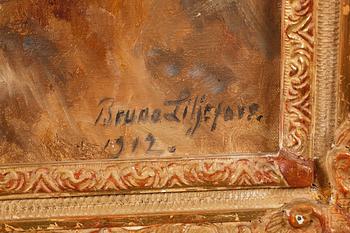 Bruno Liljefors.
1912.